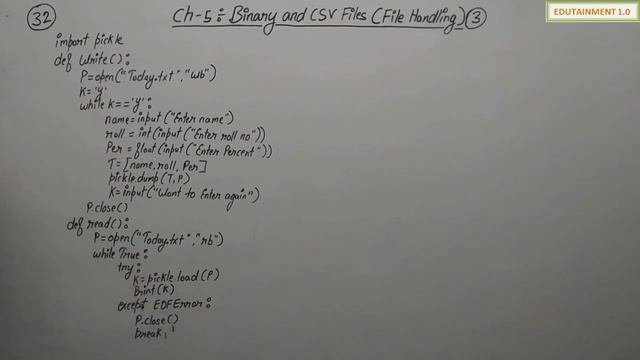 32
Ch-5: Binary and CSV Files (File Handling) 3
EDUTAINMENT 1.0
import pickle
def Write():
P=open("Today.txt","wb")
K='y'
while K=='y':
name=input("Enter name")
roll=int(input("Enter roll no"))
Per=float(input("Enter Percent"))
T=[name,roll,Per]
pickle.dump(T,P)
K=input("Want to Enter again")
P.close()
def read():
P=open("Today.txt","rb")
while True:
try:
K=pickle.load(P)
Print(K)
except EOFError:
P.close()
break